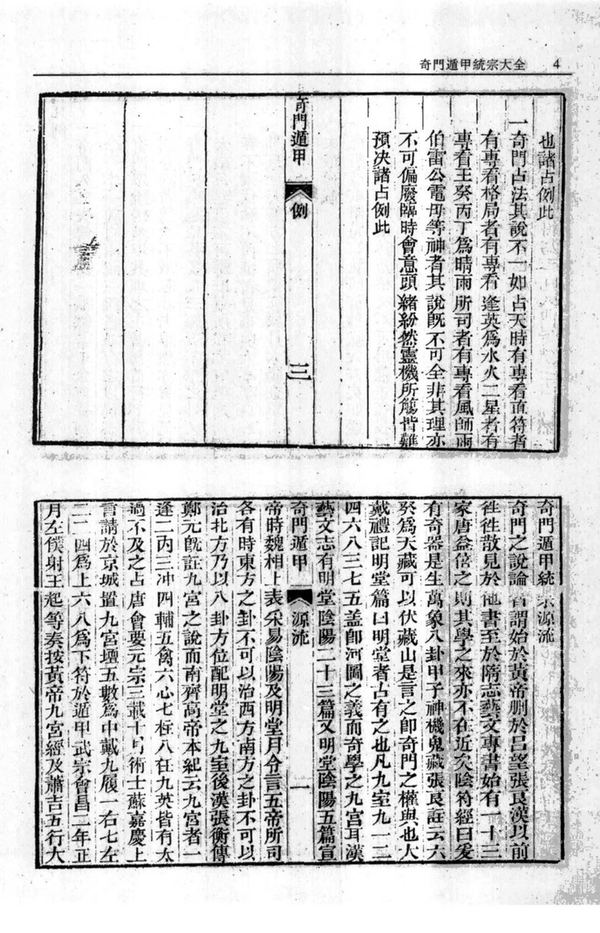 奇門遁甲統宗大全 4
也諸占例此
一奇門占法其說不一如占天時有專看直符者
有專看格局者有專看 逢英爲水火二星者有
專看壬癸丙丁爲晴雨所司者有專看風師雨
伯雷公電母等神者其說旣不可全非其理亦
不可偏廢臨時會意頭緒紛然靈機所觸皆難
預决諸占例此
奇門遁甲 例 三
奇門遁甲統宗源流
奇門之說論者謂始於黃帝刪於呂望張良漢以前
徃徃散見於他書至於隋志藝文專書始有一十三
家唐益倍之則其學之來亦不在近矣陰符經曰爰
有奇器是生萬象八卦甲子神機鬼藏張良註云六
癸爲天藏可以伏藏山是言之卽奇門之權與也大
戴禮記明堂篇曰明堂者占有之也凡九室九一二
四六八三七五蓋卽河圖之義而奇學之九宮耳漢
藝文志有明堂陰陽二十三篇又明堂陰陽五篇宣
帝時魏相上表采易陰陽及明堂月令言五帝所司
各有時東方之卦不可以治西方南方之卦不可以
治北方乃以八卦方位配明堂之九室後漢張衡傳
鄭元旣註九宮之說而南齊高帝本紀云九宮者一
逢二丙三冲四輔五禽六心七柱八任九英皆有太
過不及之占唐會要元宗三載十月術士蘇嘉慶上
言請於京城置九宮壇五數爲中戴九履一右七左
二四爲上六八爲下符於遁甲武宗會昌二年正
月左僕射王起等奏按黃帝九宮經及蕭吉五行大
奇門遁甲 源流 一